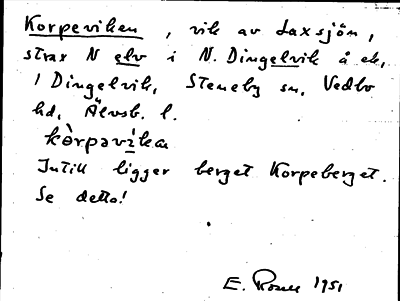 Korpeviken, vik av Laxsjön,
strax N elv i N. Dingelvik å ek,
1 Dingelvik, Steneby sn, Vedbo
hd, Älvsb. l.
kòrpəvìkan
Intill ligger berget Korpeberget.
Se detta!
E. Rosell 1951